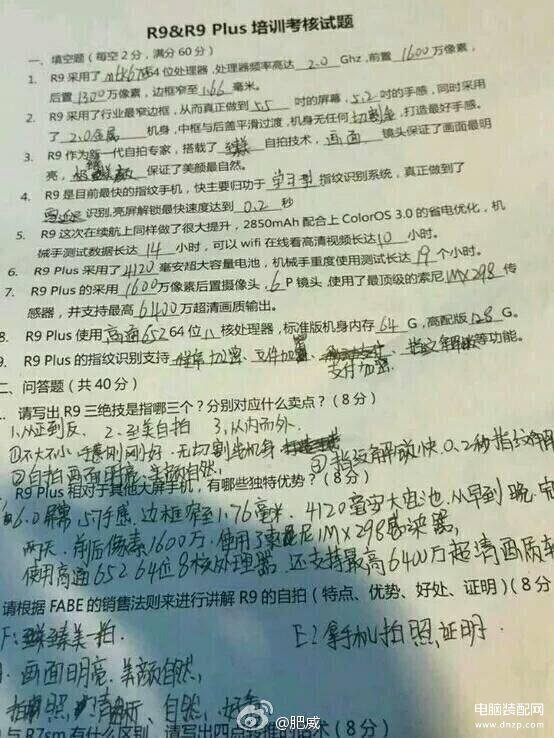 R9&R9 Plus 培训考核试题
一、填空题（每空2分，满分60分）
1. R9采用了mtk6755 64位处理器,处理器频率高达 2.0 Ghz,前置 1600万像素,
后置 1300万像素，边框窄至 1.66 毫米。
2. R9采用了行业最窄边框，从而真正做到 5.5 吋的屏幕，5.2吋的手感，同时采用
了 2.0金属 机身,中框与后盖平滑过渡,机身无任何切割金,打造最好手感。
3. R9作为新一代自拍专家，搭载了 臻美 自拍技术，画面 镜头保证了画面最明
亮，保证了美颜最自然。
4. R9是目前最快的指纹手机，快主要归功于 学习型 指纹识别系统，真正做到了
识别,亮屏解锁最快速度达到 0.2 秒
5. R9这次在续航上同样做了很大提升，2850mAh配合上ColorOS 3.0的省电优化，机
械手测试数据长达 14 小时，可以wifi在线看高清视频长达 10 小时。
6. R9 Plus采用了 4120 毫安超大容量电池，机械手重度使用测试长达 19 个小时。
7. R9 Plus的采用 1600万像素后置摄像头, 6 P镜头,使用了最顶级的索尼 IMX298 传
感器，并支持最高 6400万超清画质输出。
8. R9 Plus使用 高通652 64位 八 核处理器，标准版机身内存 64 G,高配版 128 G。
9. R9 Plus的指纹识别支持 加密、文件加密、等功能。
支付加密.
二、问答题（共40分）
请写出R9三绝技是指哪三个？分别对应什么卖点？（8分）
1.从正到反. 2.至美自拍 3.从内而外.
①不大不小 手感刚刚好. 无切割 机身 ③指纹解放快.0.2秒指纹
②自拍画面明亮,美颜自然,
R9 Plus相对于其他大屏手机，有哪些独特优势？（8分）
6.0屏幕 5.7手感.边框窄至1.76毫米. 4120毫安大电池.从早到晚.
两天.前后像素1600万.使用了索尼IMX298感染器,
使用高通652 64位8核处理器.还支持最高6400万超清画质
请根据FABE的销售法则来进行讲解R9的自拍（特点、优势、好处、证明）（8分
F:臻美一拍. E:拿手机拍照证明.
画面明亮.美颜自然,
拍照 清晰、自然,
与R7sm有什么区别，请写出四点 （8分）
肥威
电脑装配网
www.dnzp.com